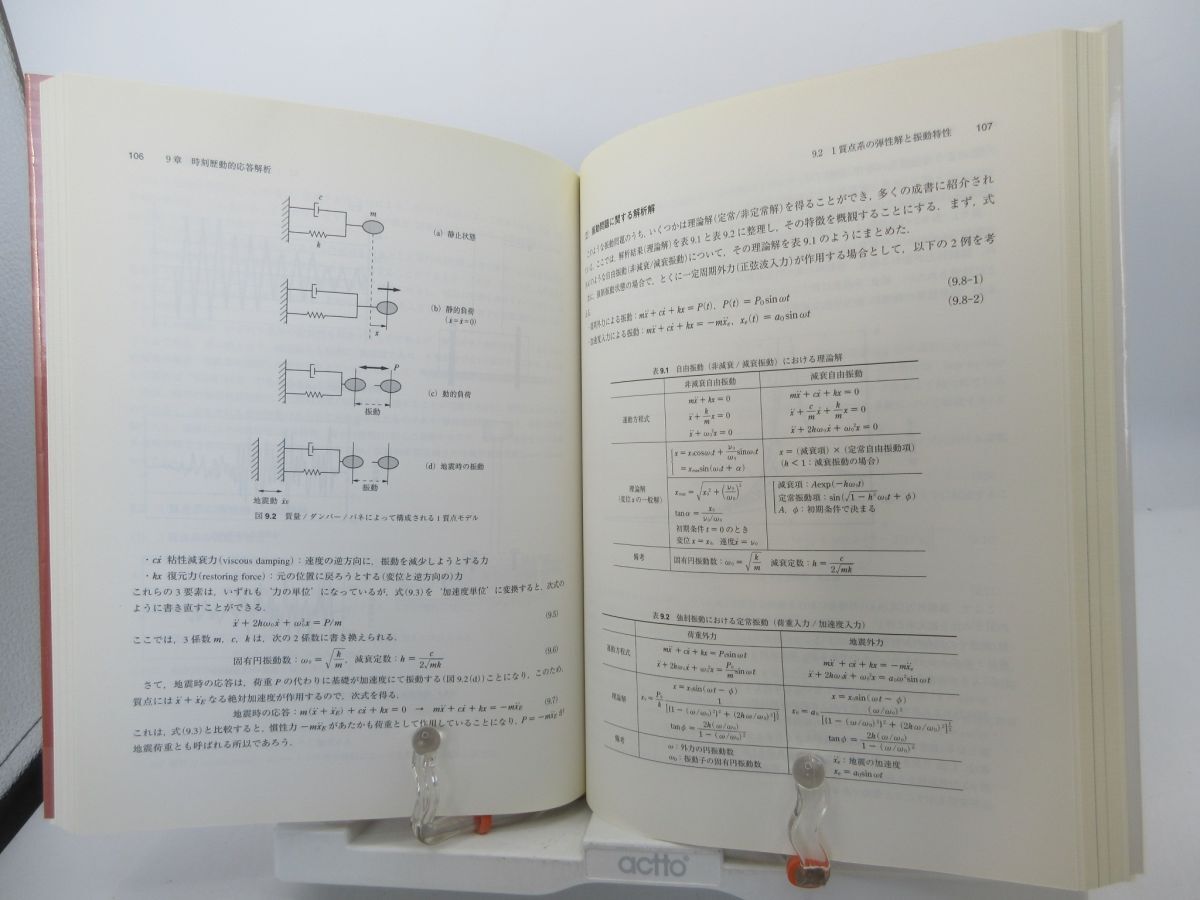 106 9章 時刻歴動的応答解析
c
m
k
(a) 静止状態
(b) 静的負荷
(ẋ=ẍ=0)
x
P
(c) 動的負荷
振動
(d) 地震時の振動
振動
地震動 ẍE
図9.2 質量/ダンパー/バネによって構成される1質点モデル
・cẋ 粘性減衰力(viscous damping)：速度の逆方向に，振動を減少しようとする力
・kx 復元力(restoring force)：元の位置に戻ろうとする(変位と逆方向の)力
これらの3要素は，いずれも‘力の単位’になっているが，式(9.3)を‘加速度単位’に変換すると，次式の
ように書き直すことができる．
ẍ + 2hω₀ẋ + ω₀²x = P/m (9.5)
ここでは，3係数 m，c，k は，次の2係数に書き換えられる．
固有円振動数：ω₀ = √(k/m)，減衰定数：h = c/(2√mk) (9.6)
さて，地震時の応答は，荷重 P の代わりに基礎が加速度にて振動する(図9.2(d))ことになり，このため，
質点には ẍ + ẍE なる絶対加速度が作用するので，次式を得る．
地震時の応答：m(ẍ + ẍE) + cẋ + kx = 0 → mẍ + cẋ + kx = −mẍE (9.7)
これは，式(9.3)と比較すると，慣性力 −mẍE があたかも荷重として作用していることになり，P = −mẍE が
地震荷重とも呼ばれる所以であろう．
9.2 1質点系の弾性解と振動特性 107
振動問題に関する解析解
このような振動問題のうち，いくつかは理論解(定常/非定常解)を得ることができ，多くの成書に紹介され
いる．ここでは，解析結果(理論解)を表9.1と表9.2に整理し，その特徴を概観することにする．まず，式
のような自由振動(非減衰/減衰振動)について，その理論解を表9.1のようにまとめた．
に，強制振動状態の場合で，とくに一定周期外力(正弦波入力)が作用する場合として，以下の2例を考
える．
外力による振動：mẍ + cẋ + kx = P(t)，P(t) = P₀sin ωt (9.8-1)
加速度入力による振動：mẍ + cẋ + kx = −mẍe，xe(t) = a₀sin ωt (9.8-2)
表9.1 自由振動（非減衰/減衰振動）における理論解
非減衰自由振動 減衰自由振動
運動方程式
mẍ + kx = 0 mẍ + cẋ + kx = 0
ẍ + (k/m)x = 0 ẍ + (c/m)ẋ + (k/m)x = 0
ẍ + ω₀²x = 0 ẍ + 2hω₀ẋ + ω₀²x = 0
理論解
(変位xの一般解)
x = x₀cosω₀t + (v₀/ω₀)sinω₀t x = (減衰項) × (定常自由振動項)
= xmax sin(ω₀t + α) (h < 1：減衰振動の場合)
xmax = √(x₀² + (v₀/ω₀)²) 減衰項：Aexp(−hω₀t)
tanα = x₀/(v₀/ω₀) 定常振動項：sin(√(1−h²) ω₀t + φ)
初期条件 t = 0 のとき A，φ：初期条件で決まる
変位 x = x₀ 速度 ẋ = v₀
備考 固有円振動数：ω₀ = √(k/m) 減衰定数：h = c/(2√mk)
表9.2 強制振動における定常振動（荷重入力/加速度入力）
荷重外力 地震外力
運動方程式
mẍ + cẋ + kx = P₀sinωt mẍ + cẋ + kx = −mẍe
ẍ + 2hω₀ẋ + ω₀²x = (P₀/m)sinωt ẍ + 2hω₀ẋ + ω₀²x = a₀ω²sinωt
理論解
x = x₀sin(ωt − φ) x = x₀sin(ωt − φ)
x₀ = (P₀/k) 1/[{1 − (ω/ω₀)²}² + (2hω/ω₀)²]^½ x₀ = a₀ (ω/ω₀)²/[{1 − (ω/ω₀)²}² + (2hω/ω₀)²]^½
tanφ = 2h(ω/ω₀)/(1 − (ω/ω₀)²) tanφ = 2h(ω/ω₀)/(1 − (ω/ω₀)²)
備考
ω：外力の円振動数 ẍe：地震の加速度
ω₀：振動子の固有円振動数 xe = a₀sin ωt
actto